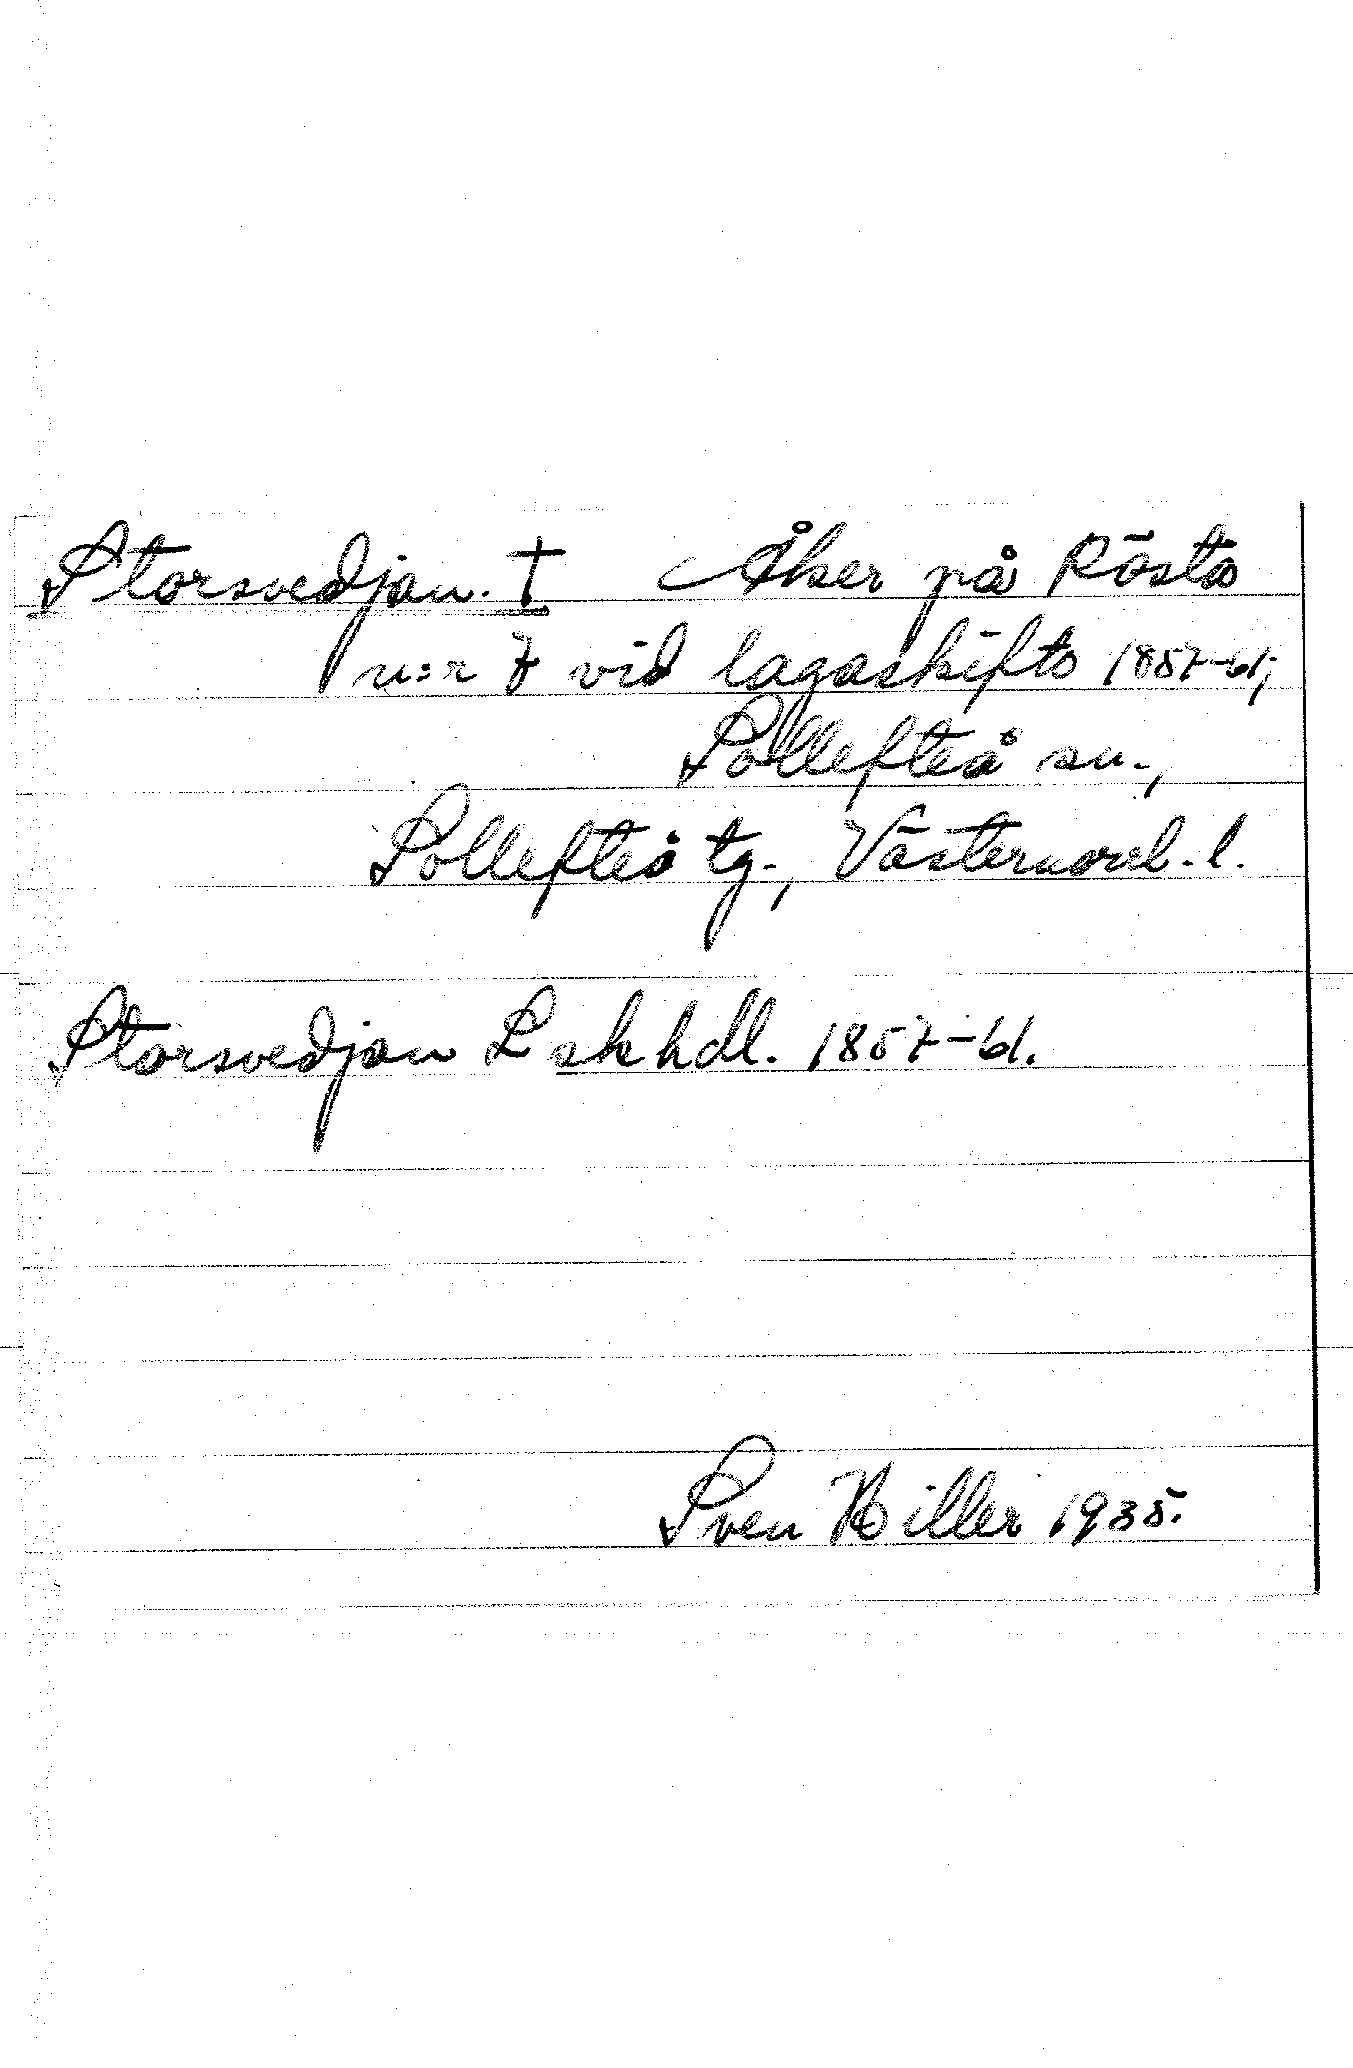 Storsvedjan. † Åker på Rösta
n:r 7 vid lagaskifte 1857-61;
Sollefteå sn.,
Sollefteå tg., Västernorrl. l.
Storsvedjan L skhdl. 1857-61.
Sven Hiller 1935.